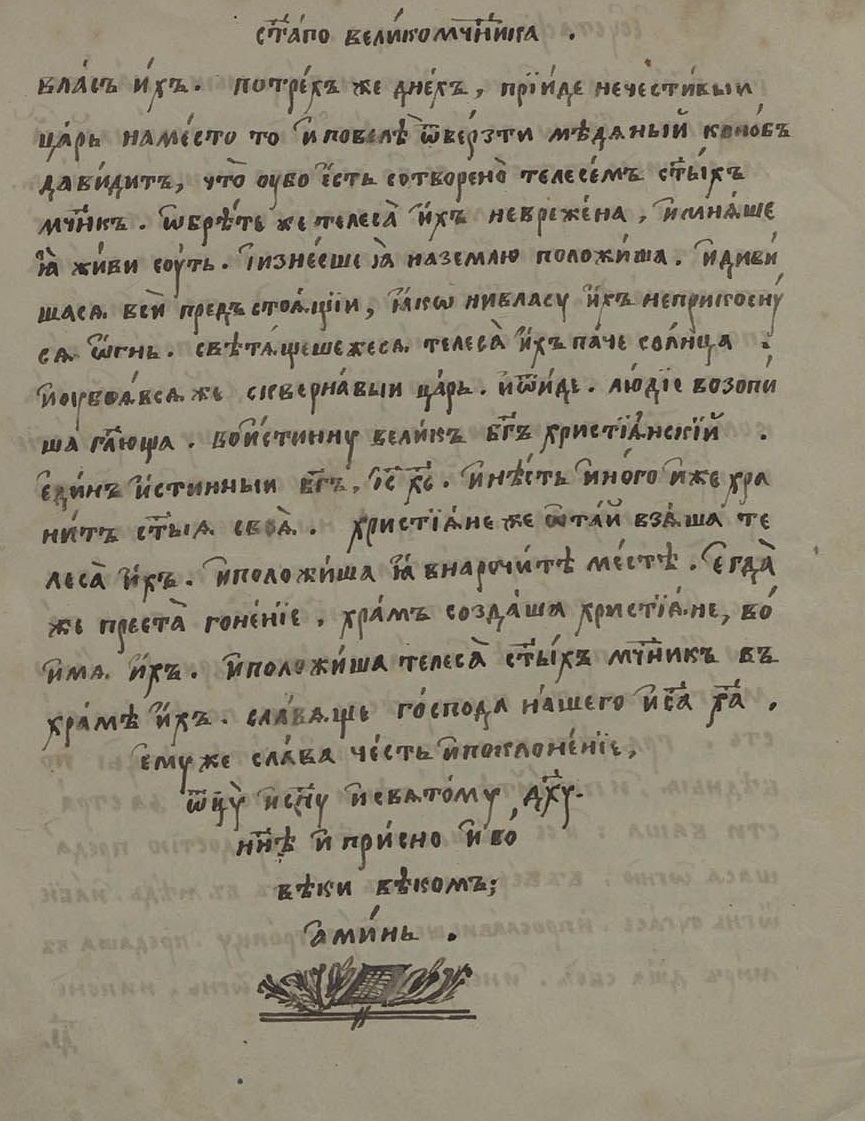 ст҃а́го вели́комч҃ника .
вла́съ и́хъ . потре́хъ же дне́хъ , прїи́де нечести́выи
ца́рь наме́сто то и҆повелѣ̀ ѿве́рзти мѣ́дѧный коно́бъ
дави́дитъ , что̀ оубо е҆́сть сотворено̀ телесе́мъ ст҃ы́хъ
мч҃нкъ . ѡ҆брѣ́те же телеса̀ и҆́хъ невреже́на , и҆мнѧ́ше
ꙗ҆̀ жи́ви соу́ть . і҆изне́сше ꙗ҆̀ наземлю положи́ша . и҆диви́
шасѧ всѝ предъстоѧ́щїи , ꙗ҆́кѡ нивласу̀ и҆́хъ неприкосну́
сѧ ѻ҆́гнь . свѣтѧ́щешежесѧ телеса̀ и҆́хъ па́че со́лнца :
и҆оубоѧ́всѧ же скверна́выи ца́рь . и҆ѿи́де . лю́дїе возопи́
ша гл҃юща . вои́стинну вели́къ бг҃ъ христїѧ́нскїй .
е҆ди́нъ и҆́стинныи бг҃ъ , і҆с҃ хс҃ . и҆нѣ́сть и҆но́го и҆́же хра
ни́тъ ст҃ы́ѧ своѧ̀ . христїѧ́не же ѿта́й взѧ́ша те
леса̀ и҆́хъ . и҆положи́ша ꙗ҆̀ внарочи́тѣ ме́стѣ . Е҆гда̀
же преста̀ гоне́нїе , хра́мъ созда́ша христїѧ́не , во́
и҆мѧ и҆́хъ . и҆положи́ша телеса̀ ст҃ы́хъ мч҃никъ въ
хра́мѣ и҆́хъ . сла́вѧще го́спода на́шего и҆с҃а хр҃а̀ .
е҆му́же сла́ва че́сть и҆поклоне́нїе ,
ѻ҆ц҃у̀ и҆сн҃у и҆свѧто́му дх҃у .
нн҃ѣ и҆ при́сно и҆ во́
вѣ́ки вѣ́комъ ;
а҆ми́нь .